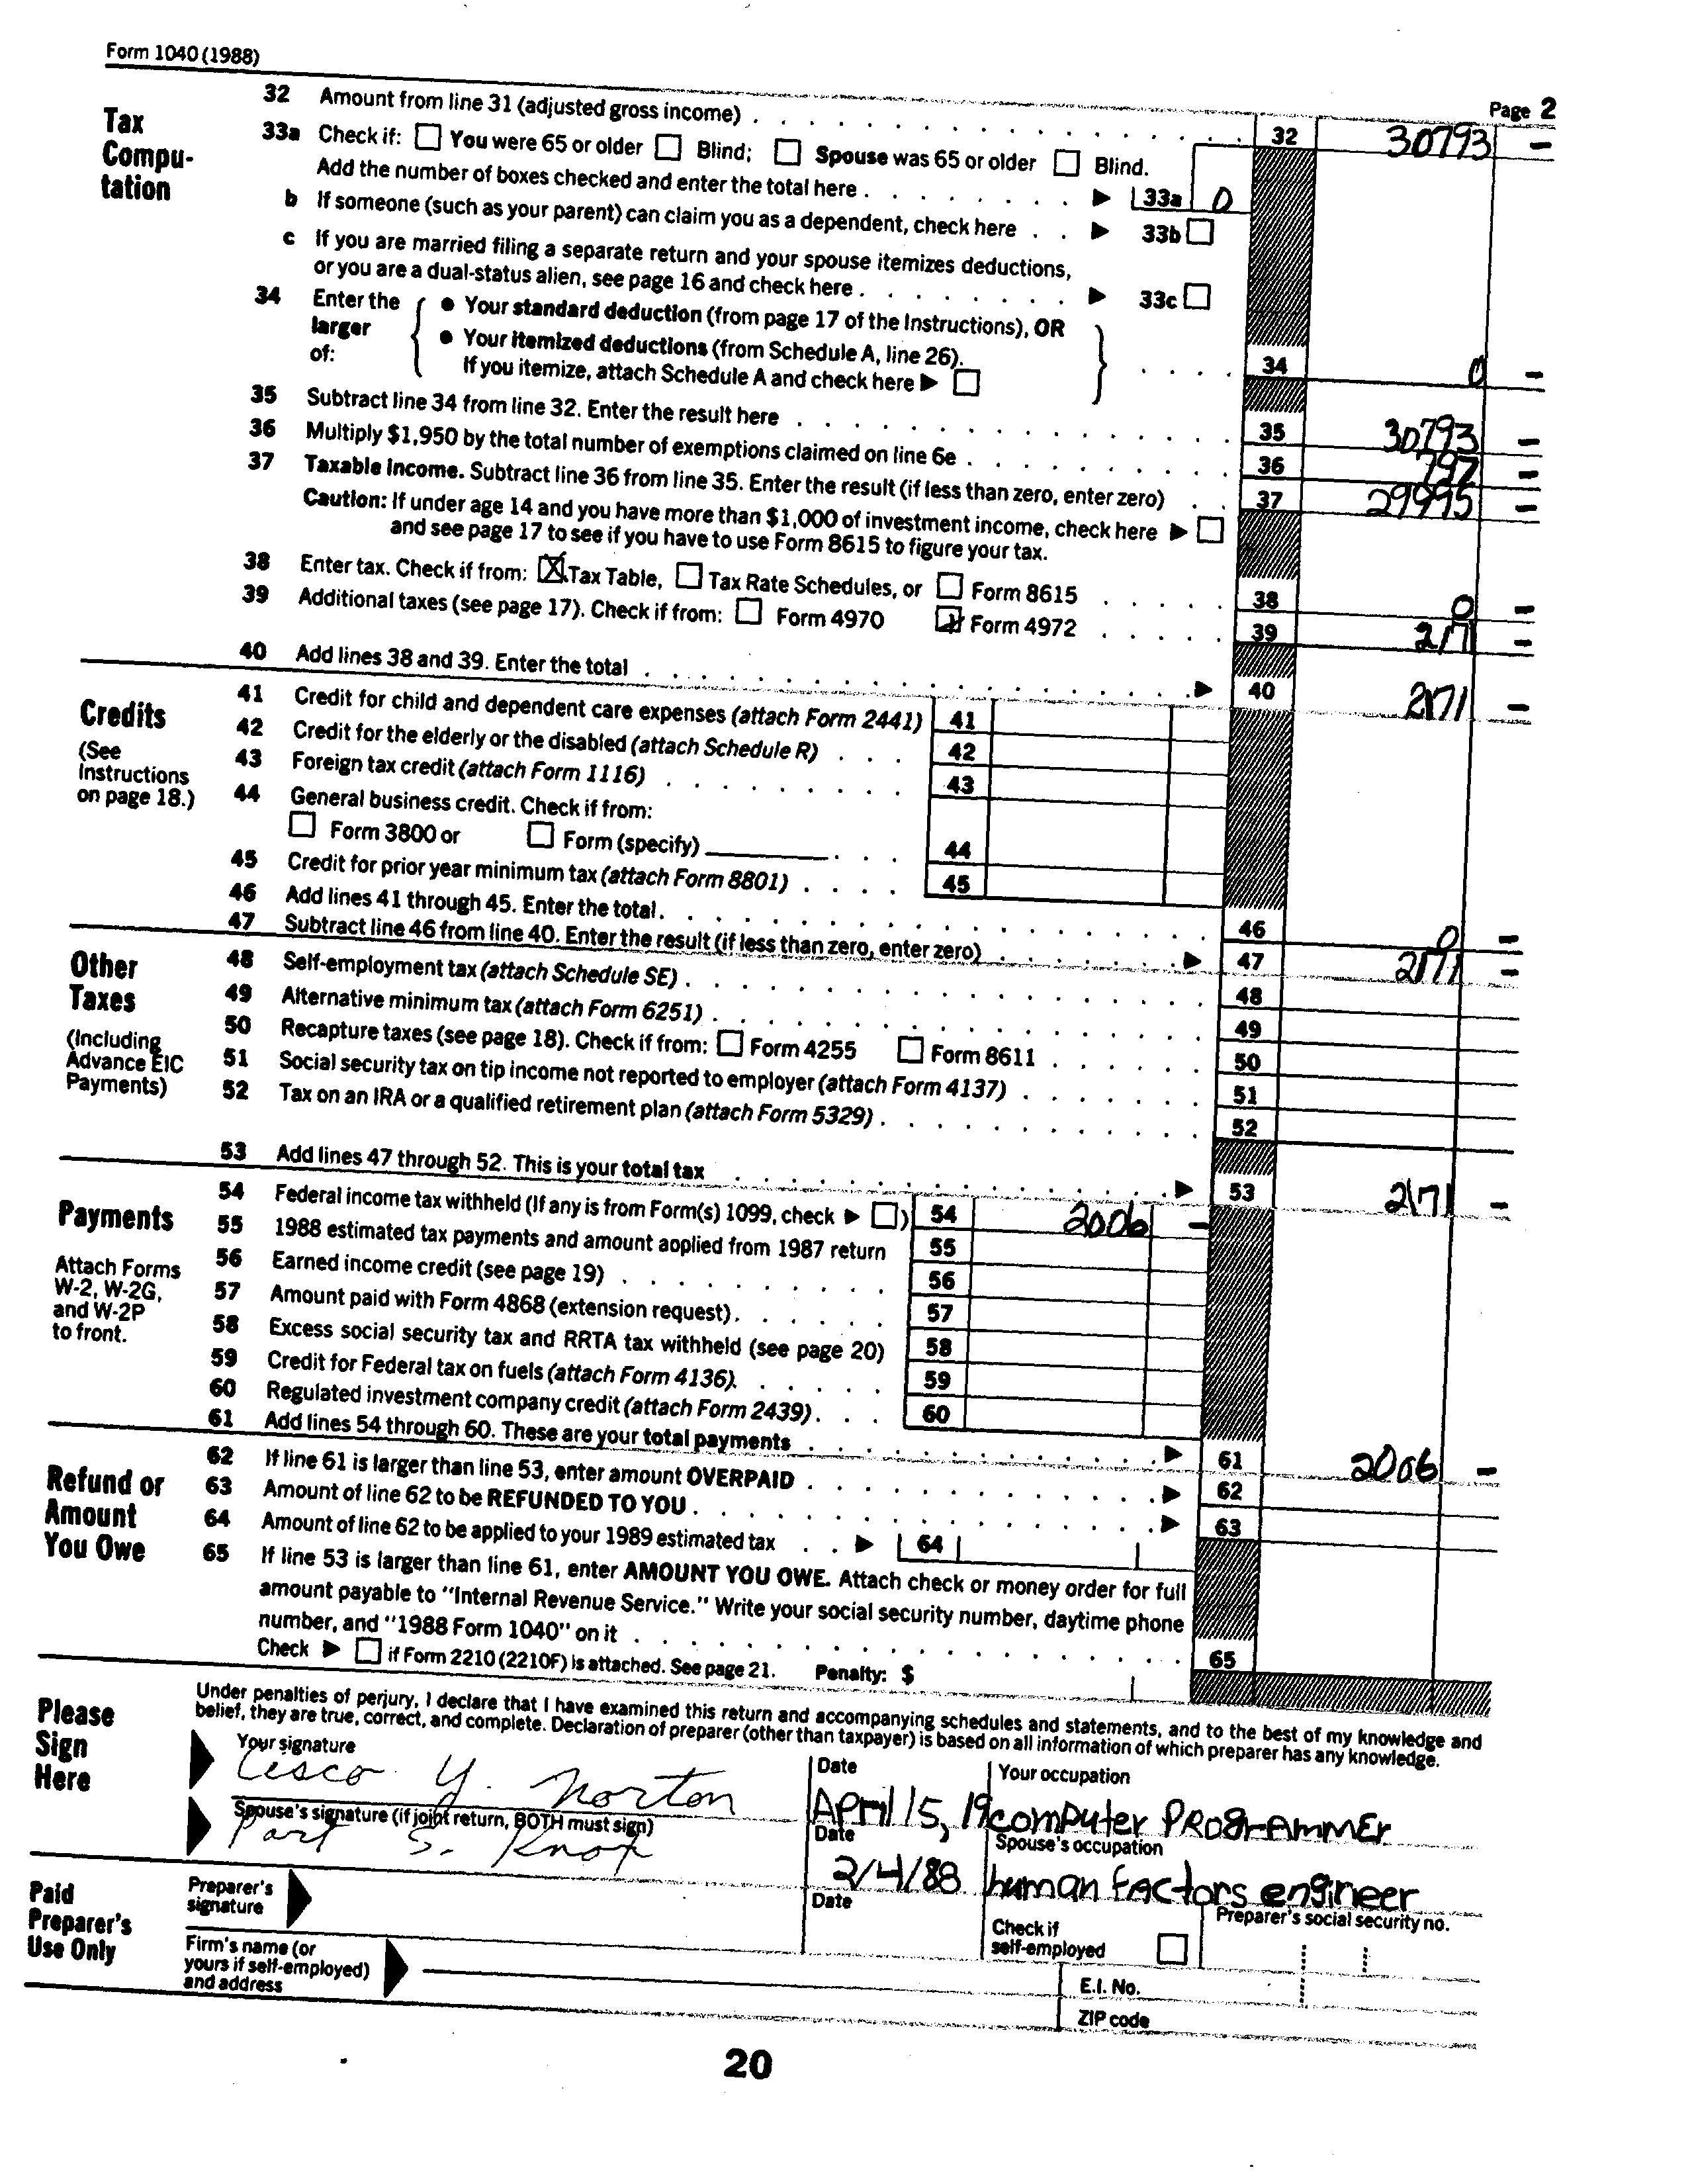 Form 1040 (1988)
Page 2
Tax Compu- tation
32 Amount from line 31 (adjusted gross income) 32 30793 –
33a Check if: You were 65 or older Blind; Spouse was 65 or older Blind.
Add the number of boxes checked and enter the total here 33a 0
b If someone (such as your parent) can claim you as a dependent, check here 33b
c If you are married filing a separate return and your spouse itemizes deductions,
or you are a dual-status alien, see page 16 and check here 33c
34 Enter the larger of:
• Your standard deduction (from page 17 of the Instructions), OR
• Your itemized deductions (from Schedule A, line 26).
If you itemize, attach Schedule A and check here
34 0 –
35 Subtract line 34 from line 32. Enter the result here 35 30793 –
36 Multiply $1,950 by the total number of exemptions claimed on line 6e 36 797 –
37 Taxable income. Subtract line 36 from line 35. Enter the result (if less than zero, enter zero) 37 29995 –
Caution: If under age 14 and you have more than $1,000 of investment income, check here
and see page 17 to see if you have to use Form 8615 to figure your tax.
38 Enter tax. Check if from: X Tax Table, Tax Rate Schedules, or Form 8615 38 0 –
39 Additional taxes (see page 17). Check if from: Form 4970 Form 4972 39 2171 –
40 Add lines 38 and 39. Enter the total 40 2171 –
Credits
(See Instructions on page 18.)
41 Credit for child and dependent care expenses (attach Form 2441) 41
42 Credit for the elderly or the disabled (attach Schedule R) 42
43 Foreign tax credit (attach Form 1116) 43
44 General business credit. Check if from:
Form 3800 or Form (specify) 44
45 Credit for prior year minimum tax (attach Form 8801) 45
46 Add lines 41 through 45. Enter the total. 46 0 –
47 Subtract line 46 from line 40. Enter the result (if less than zero, enter zero) 47 2171 –
Other Taxes
(Including Advance EIC Payments)
48 Self-employment tax (attach Schedule SE) 48
49 Alternative minimum tax (attach Form 6251) 49
50 Recapture taxes (see page 18). Check if from: Form 4255 Form 8611 50
51 Social security tax on tip income not reported to employer (attach Form 4137) 51
52 Tax on an IRA or a qualified retirement plan (attach Form 5329) 52
53 Add lines 47 through 52. This is your total tax 53 2171 –
Payments
Attach Forms W-2, W-2G, and W-2P to front.
54 Federal income tax withheld (If any is from Form(s) 1099, check ) 54 2006 –
55 1988 estimated tax payments and amount applied from 1987 return 55
56 Earned income credit (see page 19) 56
57 Amount paid with Form 4868 (extension request) 57
58 Excess social security tax and RRTA tax withheld (see page 20) 58
59 Credit for Federal tax on fuels (attach Form 4136) 59
60 Regulated investment company credit (attach Form 2439) 60
61 Add lines 54 through 60. These are your total payments 61 2006 –
Refund or Amount You Owe
62 If line 61 is larger than line 53, enter amount OVERPAID 62
63 Amount of line 62 to be REFUNDED TO YOU 63
64 Amount of line 62 to be applied to your 1989 estimated tax 64
65 If line 53 is larger than line 61, enter AMOUNT YOU OWE. Attach check or money order for full
amount payable to "Internal Revenue Service." Write your social security number, daytime phone
number, and "1988 Form 1040" on it 65
Check if Form 2210 (2210F) is attached. See page 21. Penalty: $
Please Sign Here
Under penalties of perjury, I declare that I have examined this return and accompanying schedules and statements, and to the best of my knowledge and
belief, they are true, correct, and complete. Declaration of preparer (other than taxpayer) is based on all information of which preparer has any knowledge.
Your signature Date Your occupation
Cesco Y. Norton April 15, 19 computer PROgrAmmEr
Spouse's signature (if joint return, BOTH must sign) Date Spouse's occupation
S. Knox 2/4/88 human FActors engineer
Paid Preparer's Use Only
Preparer's signature Date Check if self-employed Preparer's social security no.
Firm's name (or yours if self-employed) and address
E.I. No.
ZIP code
20